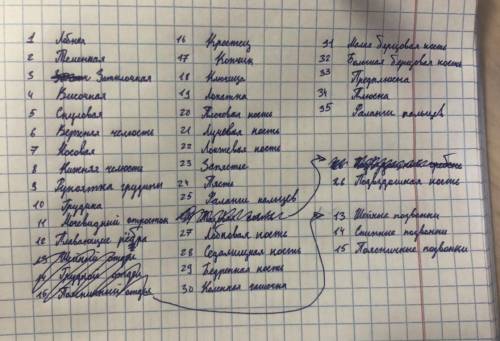 1 Лобная
2 Теменная
3 Затылочная
4 Височная
5 Скуловая
6 Верхняя челюсть
7 Носовая
8 Нижняя челюсть
9 Рукоятка грудины
10 Грудина
11 Мечевидный отросток
12 Плавающие рёбра
13 Шейный отдел
14 Грудной отдел
15 Поясничный отдел
16 Крестец
17 Копчик
18 Ключица
19 Лопатка
20 Плечевая кость
21 Лучевая кость
22 Локтевая кость
23 Запястье
24 Пясть
25 Фаланги пальцев
27 Лобковая кость
28 Седалищная кость
29 Бедренная кость
30 Коленная чашечка
31 Мало берцовая кость
32 Большая берцовая кость
33 Предплюсна
34 Плюсна
35 Фаланги пальцев
26 Подвздошная кость
13 Шейные позвонки
14 Спинные позвонки
15 Поясничные позвонки